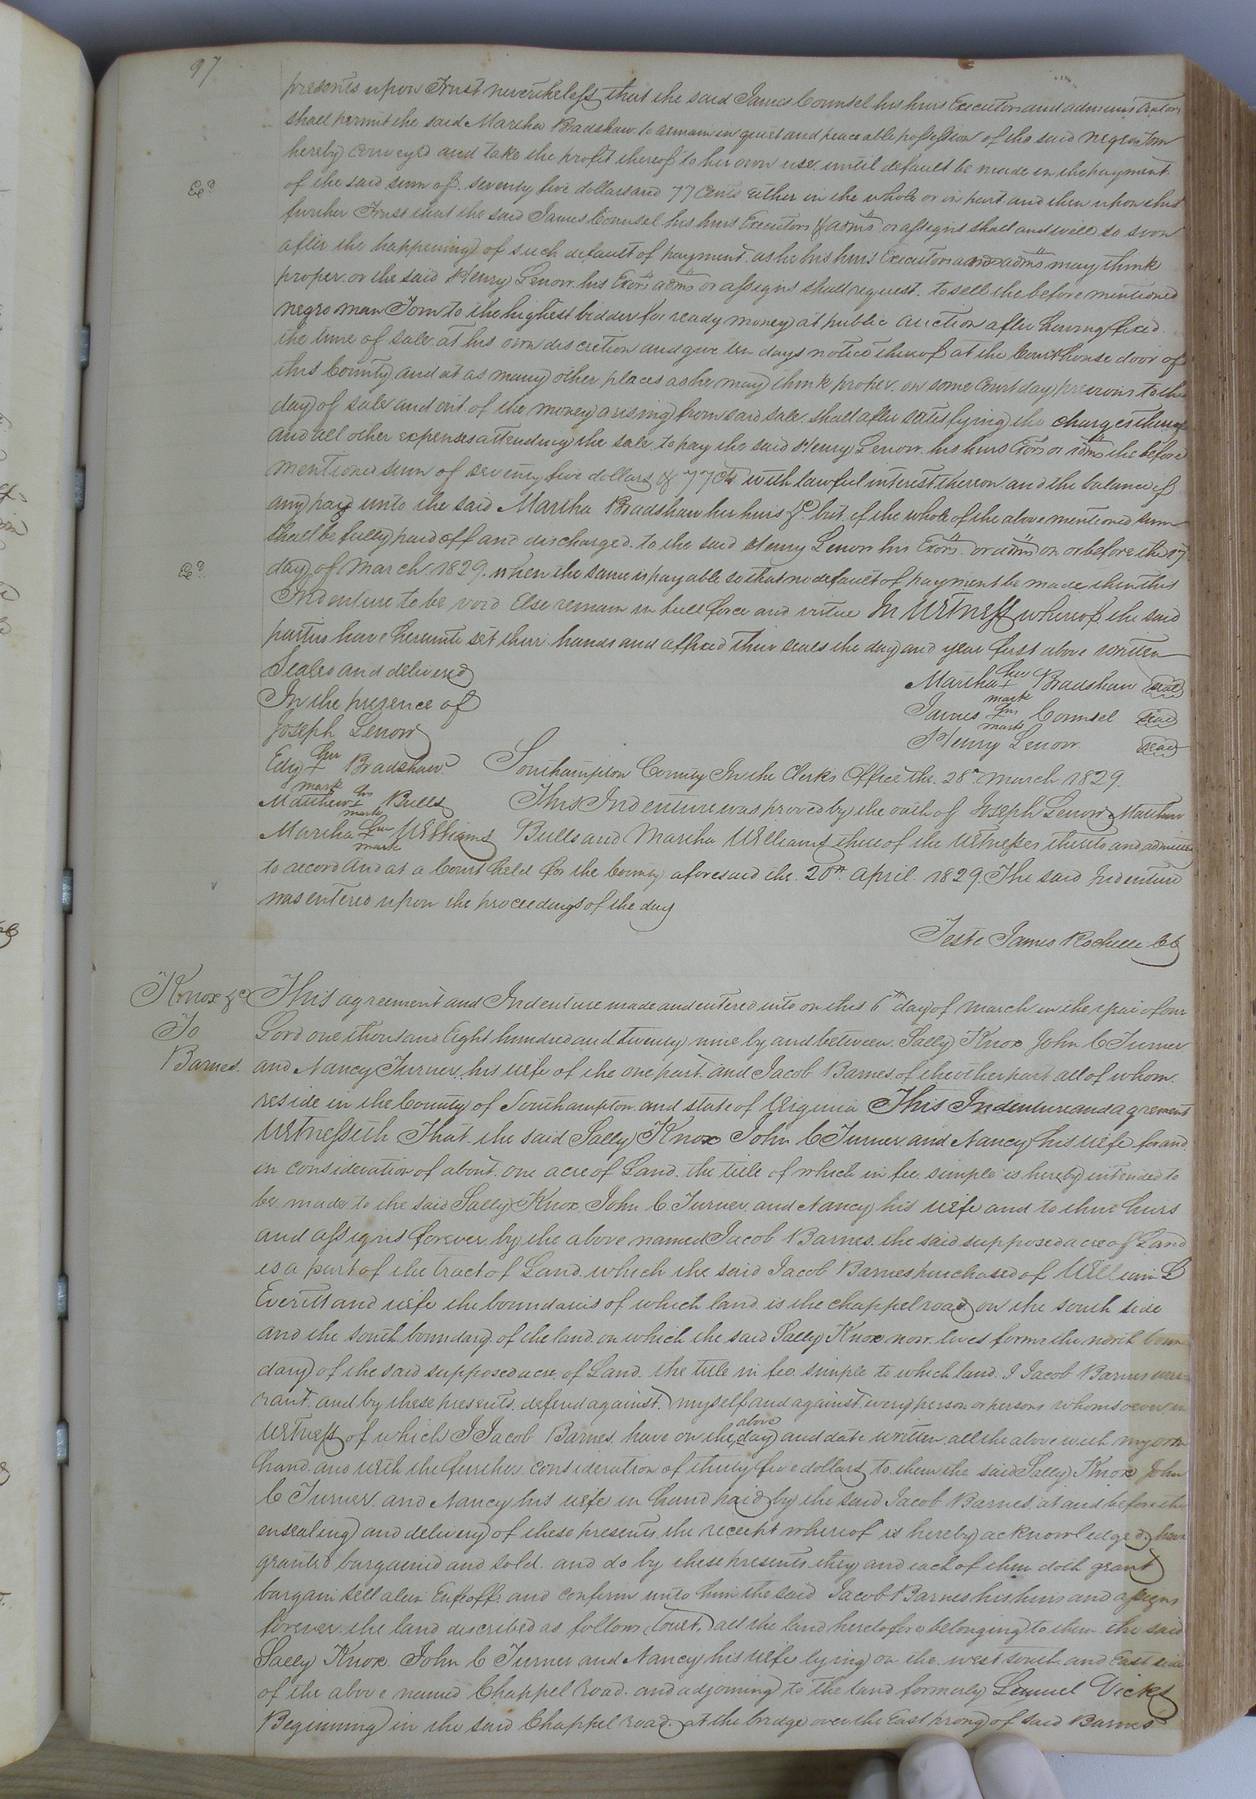 97
presents upon Trust nevertheless that the said James Counsel his heirs Executors and administrators
shall permit the said Martha Bradshaw to remain in quiet and peaceable possession of the said negro Tom
hereby conveyed and take the profit thereof to her own use until default be made in the payment
of the said sum of seventy five dollars and 77 Cents either in the whole or in part and then upon this
further Trust that the said James Counsel his heirs Executors & adms or assigns shall and will so soon
after the happening of such default of payment as he his heirs Executors and adms may think
proper or the said Henry Lenow his Exors adms or assigns shall request to sell the before mentioned
negro man Tom to the highest bidder for ready money at public auction after having fixed
the time of sale at his own discretion and give ten days notice thereof at the Courthouse door of
this County and at as many other places as he may think proper on some Court day previous to the
day of sale and out of the money arising from said sale shall after satisfying the charges thereof
and all other expenses attending the sale to pay the said Henry Lenow his heirs Exors or adms the before
mentioned sum of seventy five dollars & 77 Cts with lawful interest thereon and the balance if
any pay unto the said Martha Bradshaw her heirs &c but if the whole of the above mentioned sum
shall be fully paid off and discharged to the said Henry Lenow his Exors or adms on or before the 27
day of March 1829 when the same is payable so that no default of payment be made then this
Indenture to be void Else remain in full force and virtue In Witness whereof the said
parties have hereunto set their hands and affixed their seals the day and year first above written
Sealed and delivered
In the prezence of
Joseph Lenow
Edy her + mark Bradshaw
Matthew his + mark Bulls
Martha her + mark Williams
Martha her + mark Bradshaw seal
James his + mark Counsel seal
Henry Lenow seal
Southampton County In the Clerk's Office the 28th March 1829
This Indenture was proved by the oath of Joseph Lenow Matthew
Bulls and Martha Williams three of the Witnesses thereto and admitted
to record And at a Court held for the County aforesaid the 20th April 1829 The said Indenture
was entered upon the proceedings of the day
Teste James Rochelle CC
Knox &c
To
Barnes
This agreement and Indenture made and entered into on this 6th day of March in the year of our
Lord one thousand Eight hundred and twenty nine by and between Sally Knox John C Turner
and Nancy Turner his wife of the one part and Jacob Barnes of the other part all of whom
reside in the County of Southampton and state of Virginia This Indenture and agreement
Witnesseth That the said Sally Knox John C Turner and Nancy his wife for and
in consideration of about one acre of Land the title of which in fee simple is hereby intended to
be made to the said Sally Knox John C Turner and Nancy his wife and to thire heirs
and assigns forever by the above named Jacob Barnes the said supposed acre of Land
is a part of the tract of Land which the said Jacob Barnes purchased of William D
Everitt and wife the boundaries of which land is the chappel road on the south side
and the south boundary of the land on which the said Sally Knox now lives forms the north boun
dary of the said supposed acre of Land the title in fee simple to which land I Jacob Barnes war
rant and by these presents defend against myself and against every person or persons whomsoever in
Witness of which I Jacob Barnes have on the above day and date written all the above with my own
hand and with the further consideration of thirty five dollars to them the said Sally Knox John
C Turner and Nancy his wife in hand paid by the said Jacob Barnes at and before the
ensealing and delivery of these presents the receipt whereof is hereby acknowledged have
granted bargained and sold and do by these presents they and each of them doth grant
bargain sell alien Enfeoff and confirm unto him the said Jacob Barnes his heirs and assigns
forever the land described as follows, towit, all the land heretofore belonging to them the said
Sally Knox John C Turner and Nancy his wife lying on the west south and East side
of the above named Chappel road and adjoining to the land formerly Lemuel Vicks
Beginning in the said Chappel road at the bridge over the East prong of said Barnes